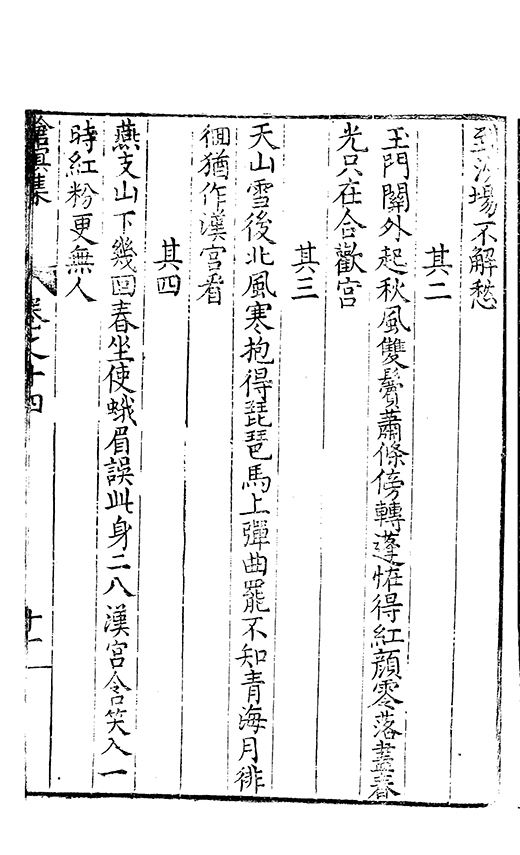 到沙場不解愁
其二
玉門關外起秋風雙鬢蕭條傍轉蓬怪得紅顏零落盡春
光只在合歡宮
其三
天山雪後北風寒抱得琵琶馬上彈曲罷不知青海月徘
徊猶作漢宮看
其四
燕支山下幾回春坐使蛾眉誤此身二八漢宮含笑入一
時紅粉更無人
滄溟集
卷之十四